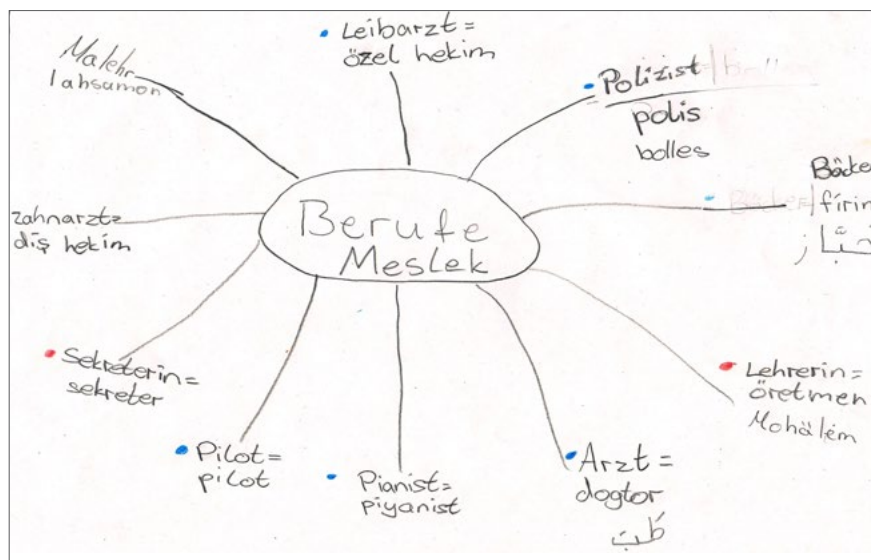 Berufe
Meslek
Leibarzt =
özel hekim
Polizist
polis
bolles
Bäcke
firin
خبّاز
Lehrerin =
öretmen
Mohälém
Arzt =
dogtor
طَبـ
Pianist =
piyanist
Pilot =
pilot
Sekreterin =
sekreter
zahnarzt =
diş hekim
Malehr